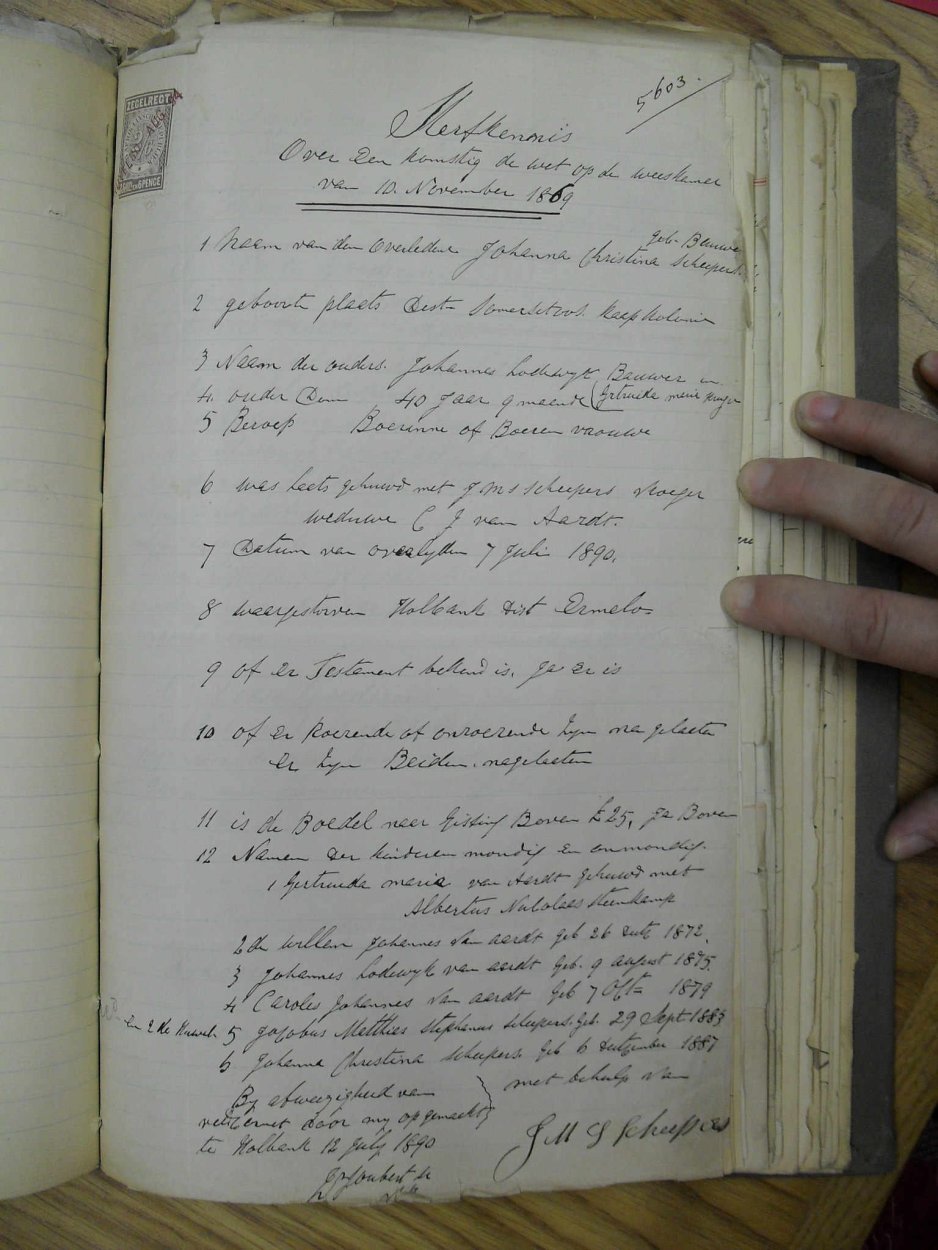 5603.
ZEGELREGT
AUG
PENCE
Sterfkennis
Over Een komstig de wet op de weeskamer
van 10. November 1869
geb. Bauwer
1 Naam van den Overledene Johanna Christina Scheepers
2 geboorte plaats Dest Somersetoost Kaap Kolonie
3 Naam der ouders. Johannes Lodewyk Bauwer en
4. ouder Dom 40 Jaar 9 maende (Gertruida maria Kruger
5 Beroep Boerinne of Boeren vrouwe
6 was laets gehuwd met J M S Scheepers vroeger
weduwe C J van Aardt.
7 Datum van overlyden 7 Juli 1890.
8 waargestorven Holbank Dist Ermelo
9 of er Testament bekend is. Ja er is
10 of er Roerende of onroerende Zyn na gelaeten
er Zyn Beiden nagelaeten
11 is de Boedel naar Gissing Boven £25, Ja Boven
12 Namen der kinderen mondig en onmondig.
1 Gertruida maria van Aardt gehuwd met
Albertus Nicolaas Steenkamp
2de Willem Johannes van aardt geb 26 1872.
3 Johannes Lodewyk van aardt Geb. 9 august 1875.
4 Caroles Johannes van aardt Geb 7 Oct 1879
en 2de Huwel. 5 Jacobus Matthies Stephanus Scheepers. Geb. 29 Sept 1883
6 Johanna Christina Scheepers. Geb 6 1887
By afweezigheid van met behulp van
veldcornet door my opgemaekt
te Holbank 12 July 1890
J M S Scheepers
Joubert